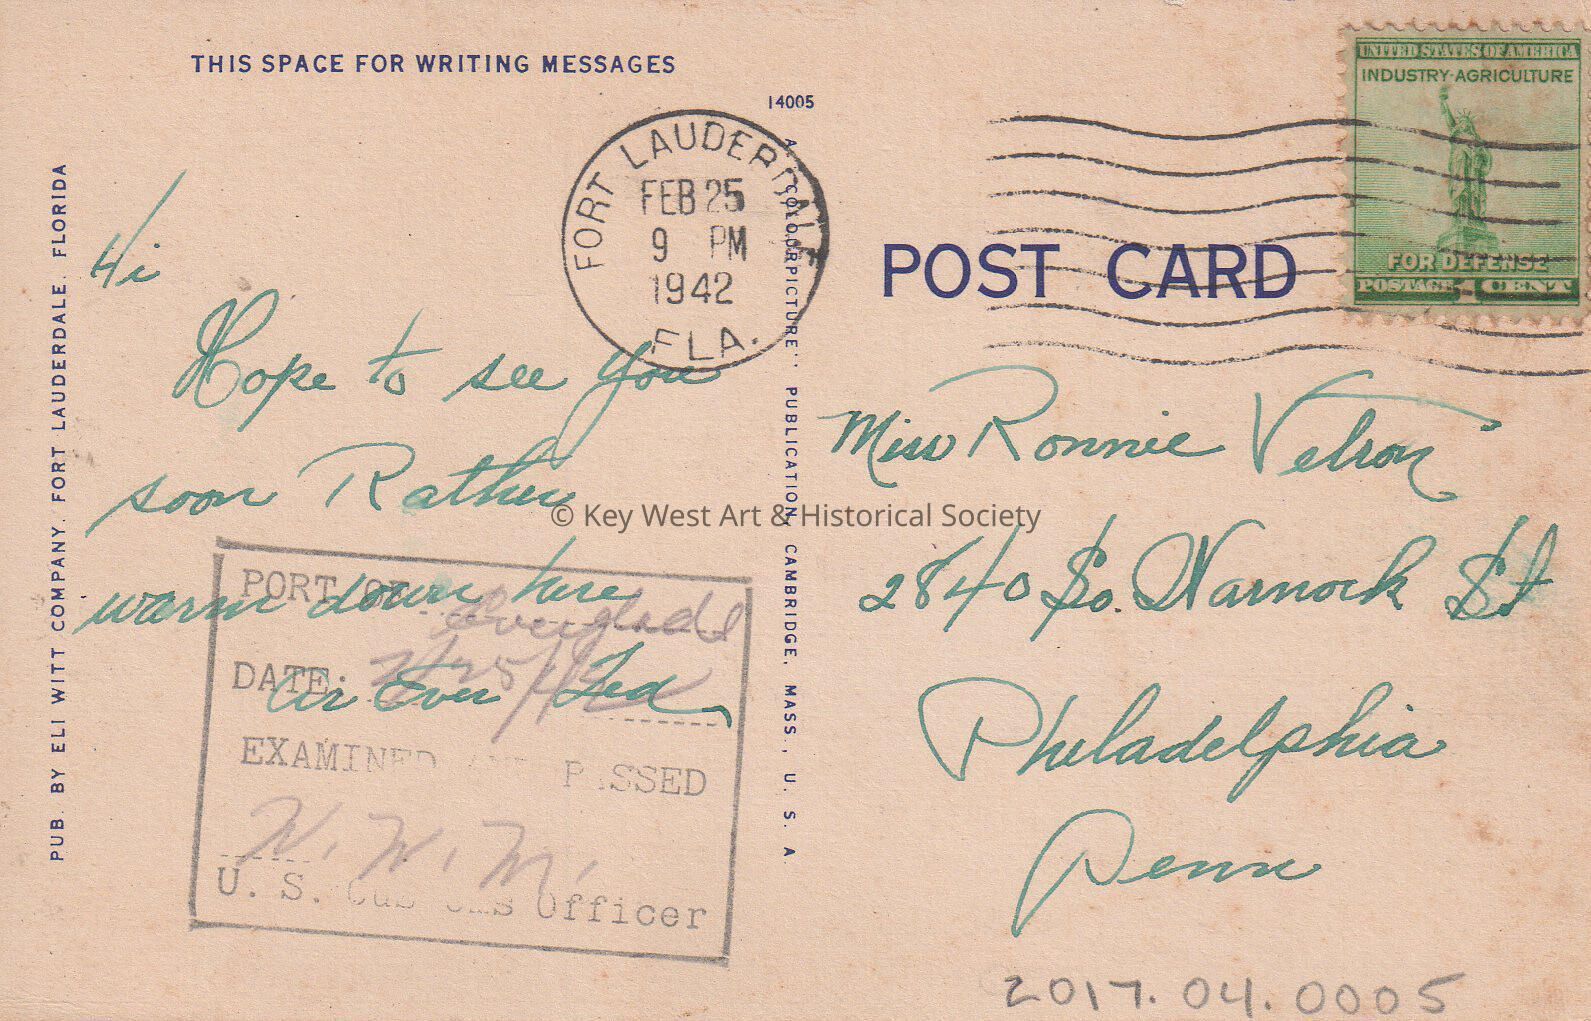 THIS SPACE FOR WRITING MESSAGES
14005
PUB. BY ELI WITT COMPANY, FORT LAUDERDALE, FLORIDA
A "COLOURPICTURE" PUBLICATION, CAMBRIDGE, MASS., U. S. A.
FORT LAUDERDALE
FEB 25
9 PM
1942
FLA.
UNITED STATES OF AMERICA
INDUSTRY-AGRICULTURE
FOR DEFENSE
POSTAGE 1 CENT
POST CARD
Hi
Hope to see you
soon Rather
warm down here
As Ever Ted
© Key West Art & Historical Society
PORT OF Everglades
DATE: 2/25/42
EXAMINED AND PASSED
W. W. M.
U. S. Customs Officer
Miss Ronnie
2840 So. Warnock St
Philadelphia
Penn
2017.04.0005